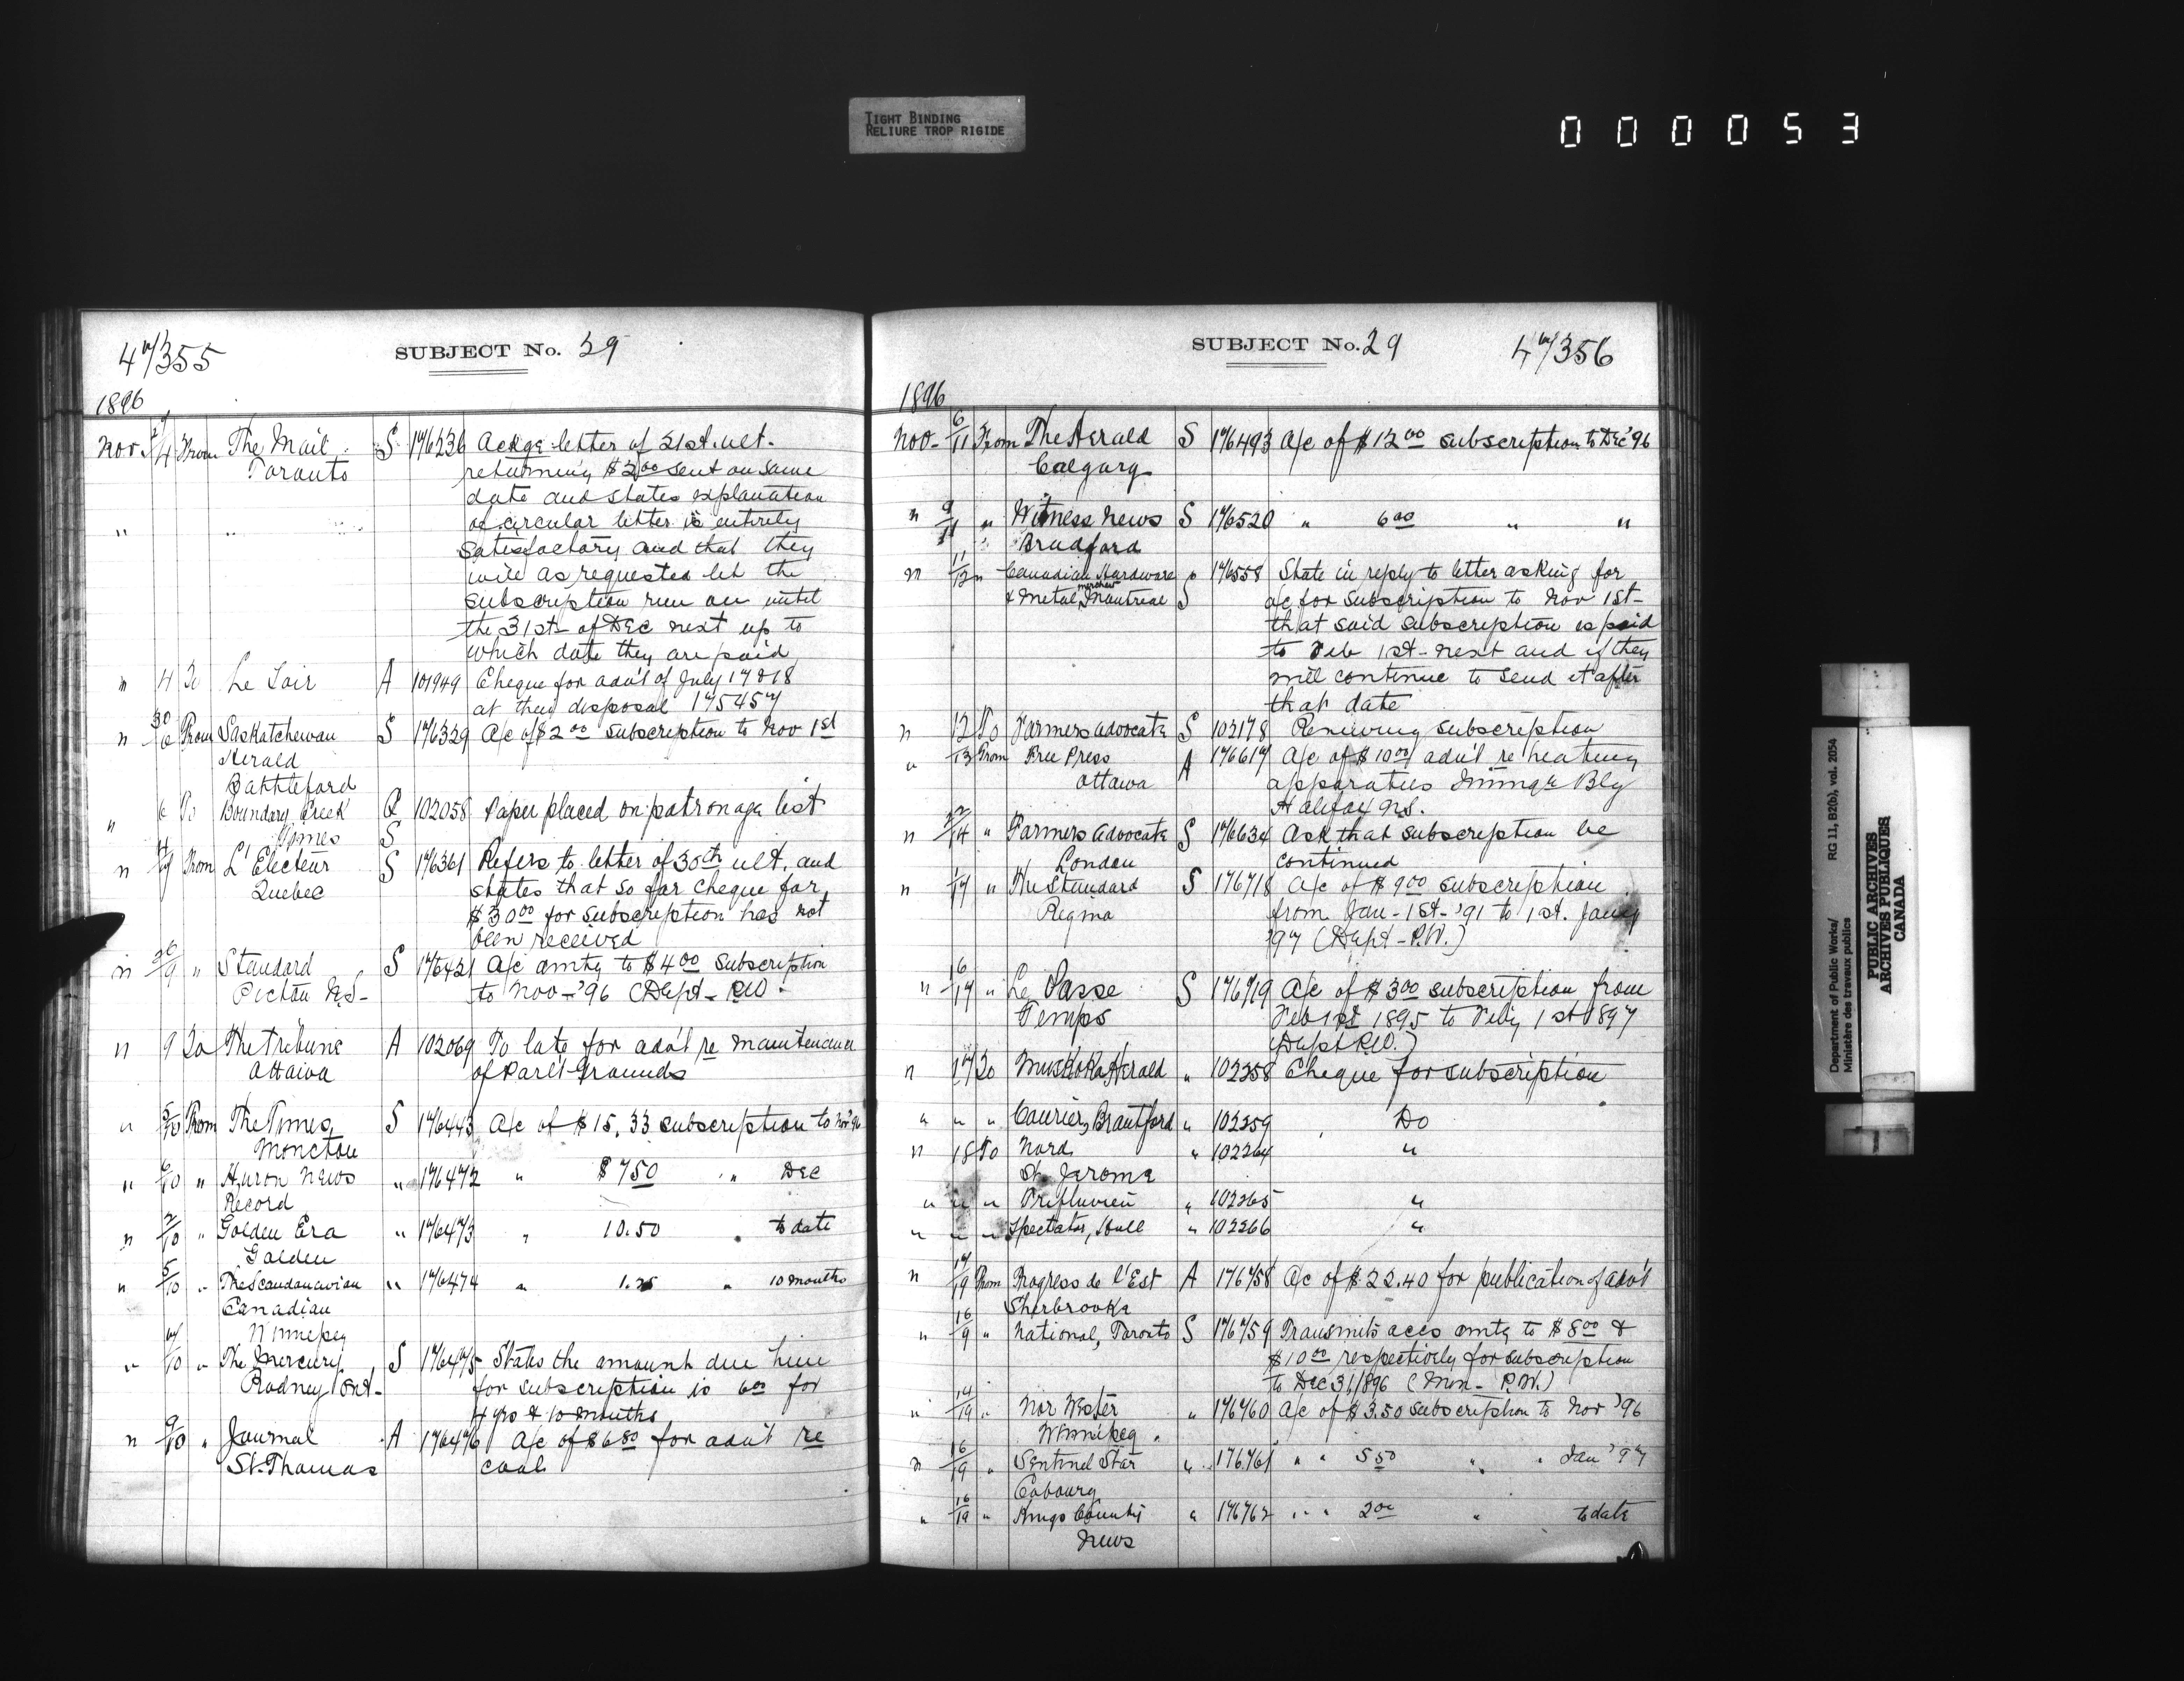 TIGHT BINDING
RELIURE TROP RIGIDE
000053
47/355
SUBJECT No. 29
1896
Nov 4 From The Mail S 176236 Ackge letter of 31st ult.
Toronto returning $2.00 sent on same
date and states explanation
" " of circular letter is entirely
satisfactory and that they
will as requested let the
subscription run on until
the 31st of Dec next up to
which date they are paid
" 4 To Le Soir A 101949 Cheque for adv't of July 17 & 18
at their disposal 175457
" 30/6 From Saskatchewan S 176329 A/c of $2.00 subscription to Nov 1st
Herald
Battleford
" 6 To Boundary Creek 102058 Paper placed on patronage list
Times S
" From L'Electeur S 176361 Refers to letter of 30th ult. and
Quebec states that so far cheque for
$30.00 for subscription has not
been received
" 26/9 " Standard S 176421 A/c amtg to $4.00 subscription
Pictou N.S. to Nov '96 (Dept P.W.
" 9 To The Tribune A 102069 To late for adv't re maintenance
Ottawa of Parlt Grounds
" 5/10 From The Times S 176443 A/c of $15.33 subscription to Nov '96
Moncton
" /10 " Huron News " 176472 " $7.50 " Dec
Record
" 2/10 " Golden Era " 176473 " 10.50 " to date
Golden
" 5/10 " The Scandanavian " 176474 " 1.25 " 10 months
Canadian
Winnipeg
" 7/10 " The Mercury S 176475 States the amount due him
Rodney Ont. for subscription is 6.00 for
4 yrs & 10 months
" 9/10 " Journal A 176476 A/c of $6.80 for adv't re
St. Thomas coal
SUBJECT No. 29
47/356
1896
Nov 6/11 From The Herald S 176493 A/c of $12.00 subscription to Dec '96
Calgary
" 9/11 " Witness News S 176520 " 6.00 " "
Bradford
" 11/12 " Canadian Hardware " 176558 State in reply to letter asking for
& Metal merchant Montreal S a/c for subscription to Nov 1st
that said subscription is paid
to Feb 1st next and if they
will continue to send it after
that date
" 12 To Farmers Advocate S 102178 Renewing subscription
" 13 From Free Press A 176617 A/c of $10.00 adv't re heating
Ottawa apparatus Immgn Bldg
Halifax N.S.
" 12/14 " Farmers Advocate S 176634 Ask that subscription be
London continued
" /17 " The Standard S 176718 A/c of $9.00 subscription
Regina from Jan 1st '91 to 1st Jany
'97 (Dept P.W.)
" 16/17 " Le Passe S 176719 A/c of $3.00 subscription from
Temps Feb 1st 1895 to Feby 1st 1897
(Dept P.W.)
" 17 To Muskoka Herald " 102258 Cheque for subscription
" " " Courier, Brantford " 102259 Do
" 18 To Nord " 102264 "
St. Jerome
" " " Trifluvien " 102265 "
" " " Spectator, Hull " 102266 "
" 17/19 From Progres de l'Est A 176758 A/c of $22.40 for publication of adv't
Sherbrooke
" 16/19 " National, Toronto S 176759 Transmits accs amtg to $8.00 &
$10.00 respectively for subscription
to Dec 31/896 (Min. P.W.)
" 14/19 " Nor Wester " 176760 A/c of $3.50 subscription to Nov '96
Winnipeg
" 16/19 " Sentinel Star " 176761 " " 5.50 " " Jan '97
Cobourg
" 16/19 " Kings County " 176762 " " 2.00 " to date
News
Department of Public Works/ RG 11, B2(b), vol. 2054
Ministère des travaux publics
PUBLIC ARCHIVES
ARCHIVES PUBLIQUES
CANADA